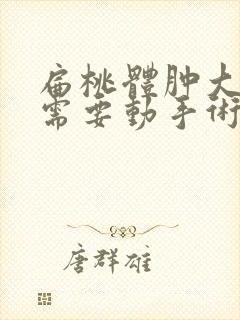 扁桃體肿大
需要動手術
唐群雄